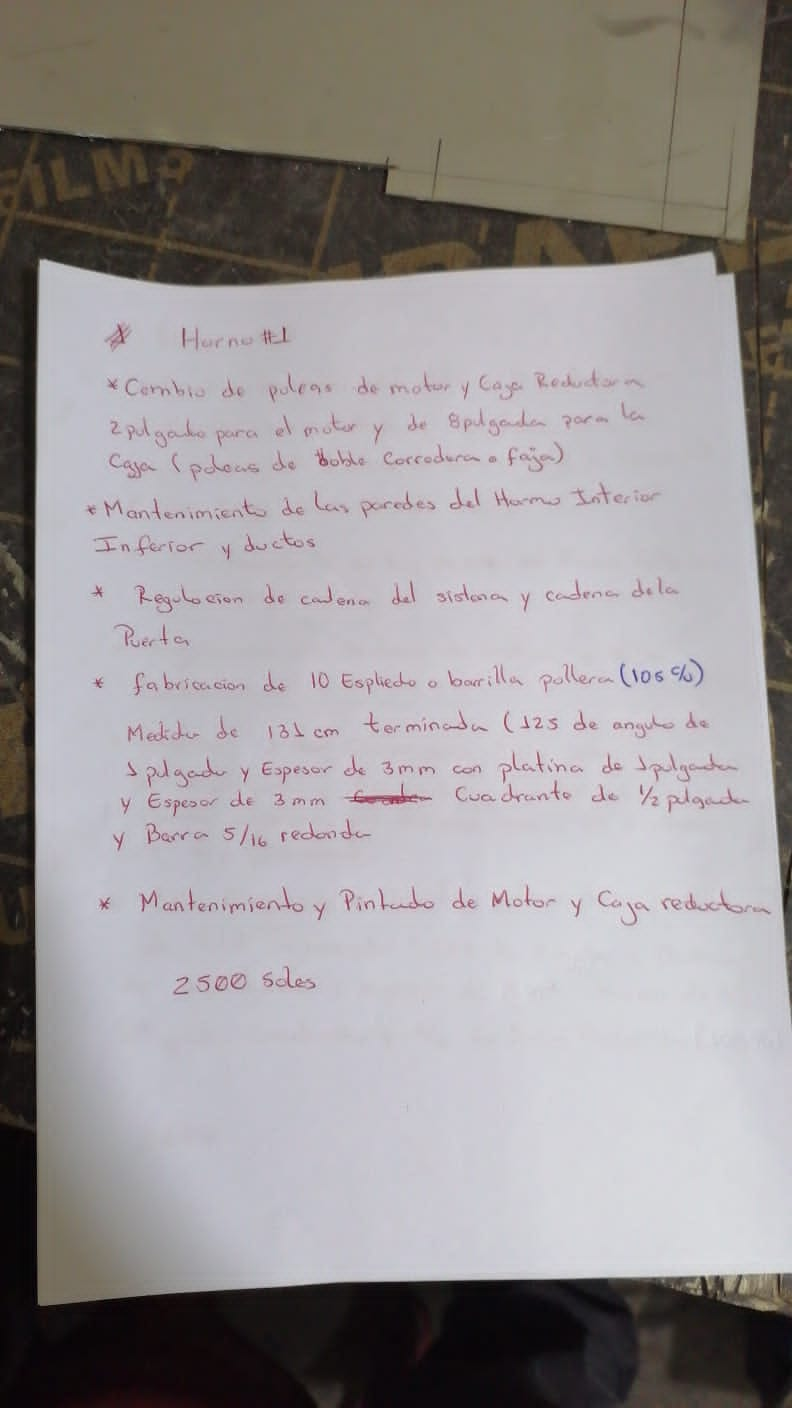 ILM
* Horno #1
* Cambio de poleas de motor y Caja Reductora
2 pulgada para el motor y de 8 pulgada para la
Caja (poleas de doble Corredera o faja)
* Mantenimiento de las paredes del Horno Interior
Inferior y ductos
* Regulocion de cadena del sistema y cadena de la
Puerta
* fabricacion de 10 Espliedo o barrilla pollera (105 c/)
Medida de 131 cm terminada (125 de angulo de
1 pulgada y Espesor de 3mm con platina de 1 pulgada
y Espesor de 3 mm Cuadrante de 1/2 pulgada
y Barra 5/16 redonda
* Mantenimiento y Pintado de Motor y Caja reductora
2500 Soles